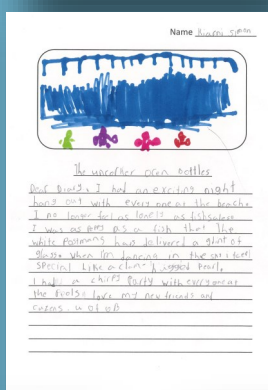 Name Kianni simon
The uncorker ocen bottles
Dear Diary. I had an exciting night
hang out with every one at the beach.
I no longer feel as lonely as
I was as as a fish that The
white Postmans have delivered a glint of
glass. When I'm dancing in the sea I feel
special like a clam-hugged pearl.
I had a chirpy Party with everyone at
the love my new friends and